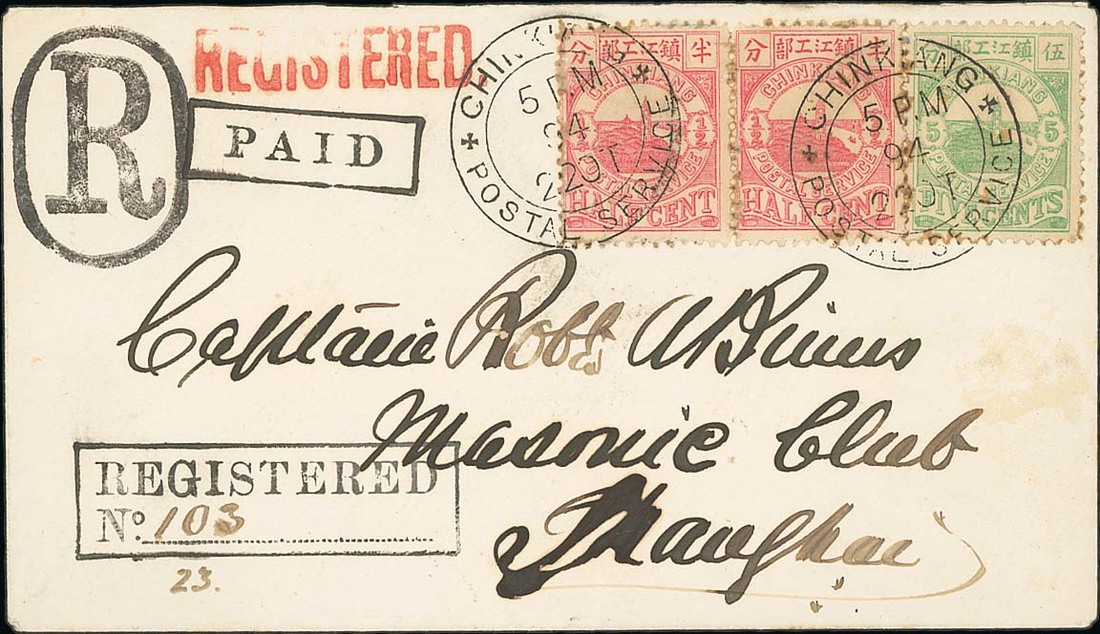 R
REGISTERED
PAID
CHINKIANG
POSTAL SERVICE
5 P.M
94
分 部工江鎮 半
CHINKIANG
1/2 1/2
POSTAL SERVICE
HALF CENT
分 部工江鎮 半
CHINKIANG
1/2
POSTAL SERVICE
HALF CENT
CHINKIANG
POSTAL SERVICE
5 P.M
94
分 部工江鎮 伍
CHINKIANG
5 5
POSTAL SERVICE
FIVE CENTS
Captain Robt
Masonic Club
Shanghai
REGISTERED
No. 103
23.